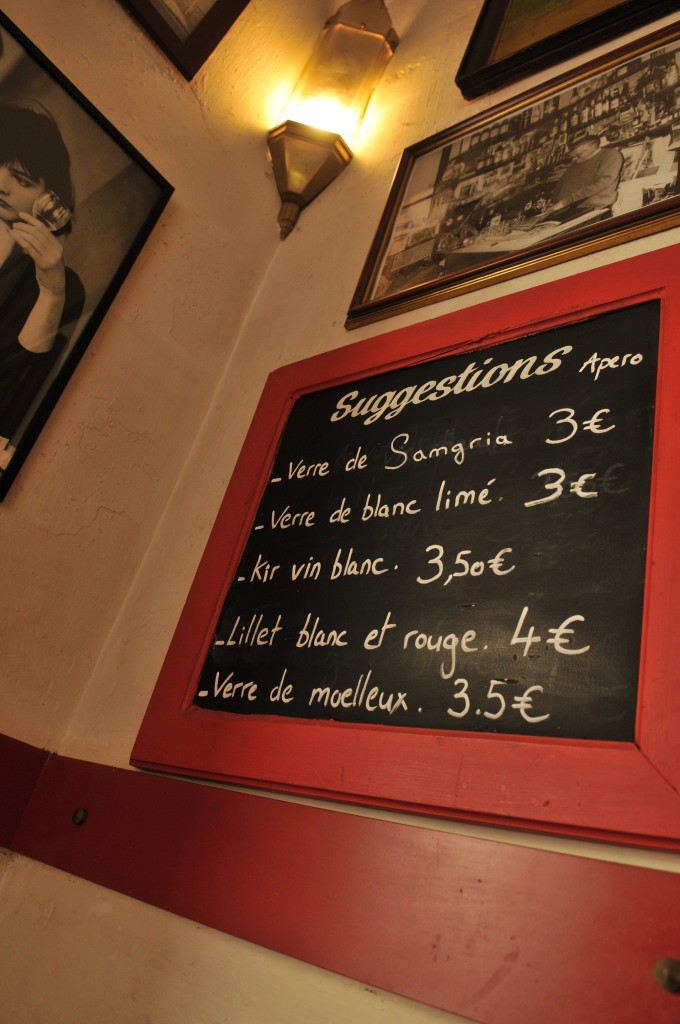 Suggestions Apero
- Verre de Samgria 3€
- Verre de blanc limé. 3€
- Kir vin blanc. 3,50€
- Lillet blanc et rouge. 4€
- Verre de moelleux. 3.5€